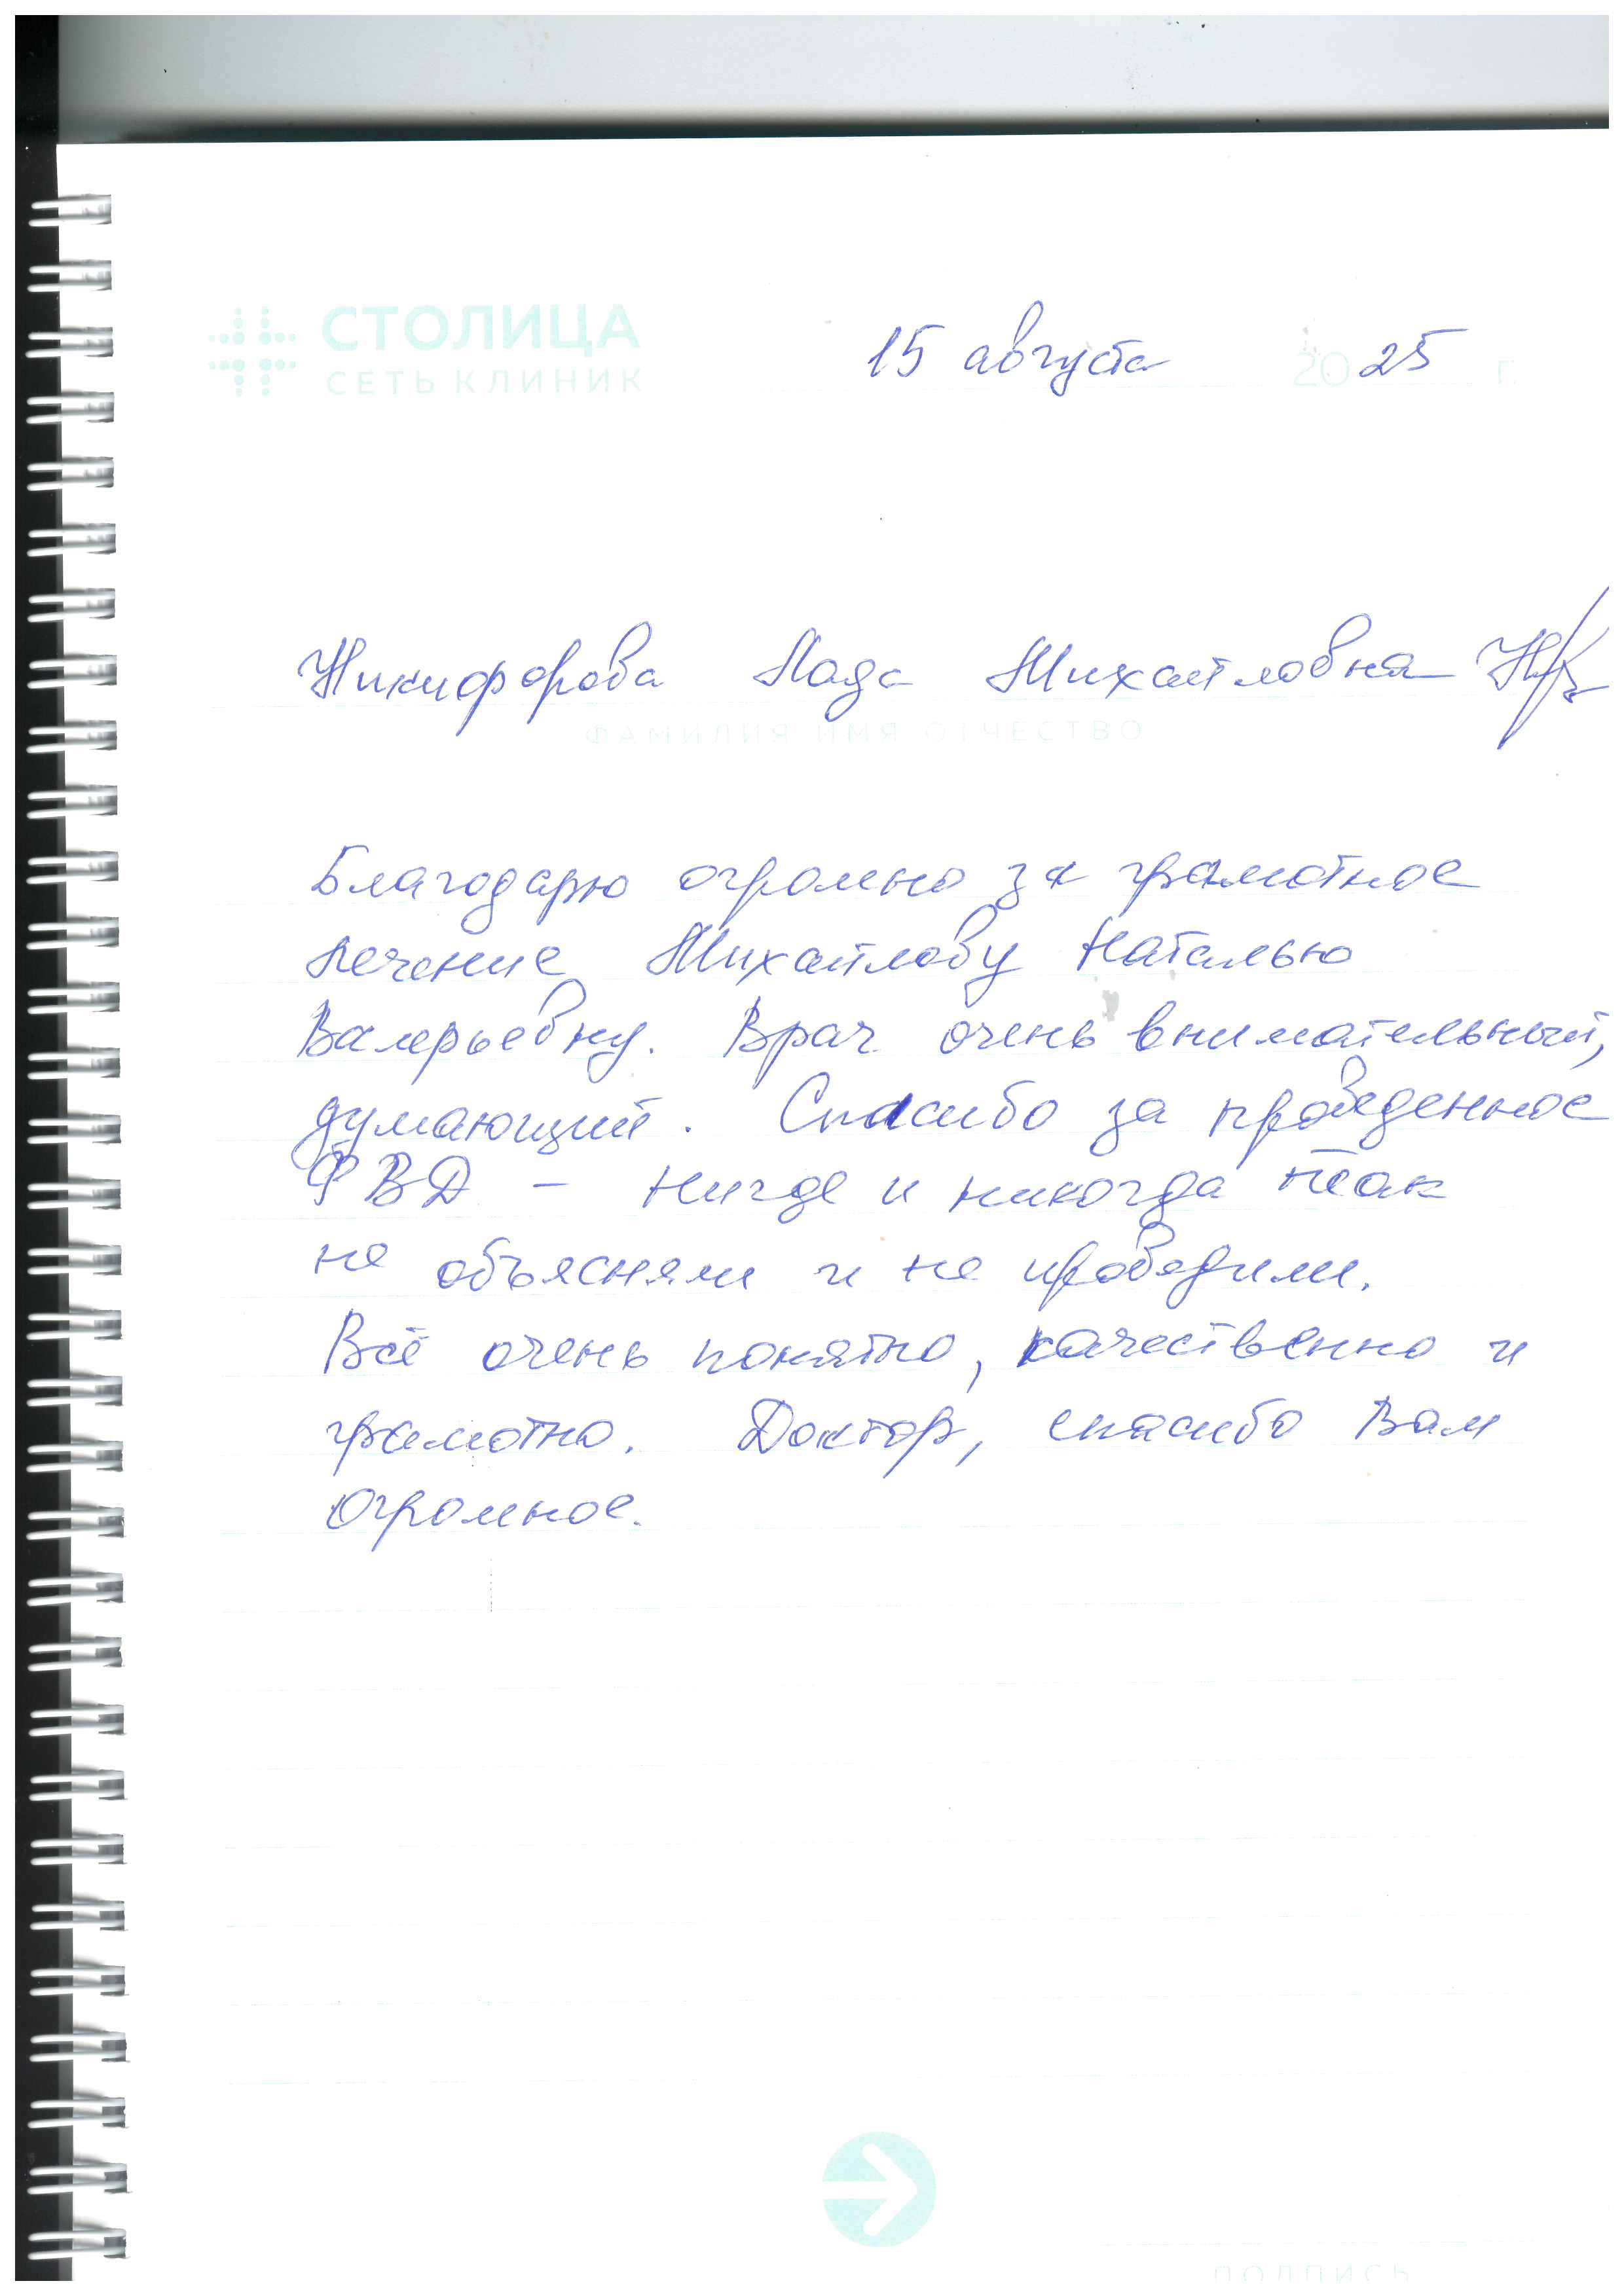 СТОЛИЦА
СЕТЬ КЛИНИК
15 августа 2025 г.
Никифорова Лада Михайловна
ФАМИЛИЯ ИМЯ ОТЧЕСТВО
Благодарю огромно за грамотное
лечение Михайлову Наталью
Валерьевну. Врач очень внимательный,
думающий. Спасибо за проведенное
ФВД – нигде и никогда так
не объясняли и не проводили.
Всё очень понятно, качественно и
грамотно. Доктор, спасибо Вам
огромное.
ПОДПИСЬ